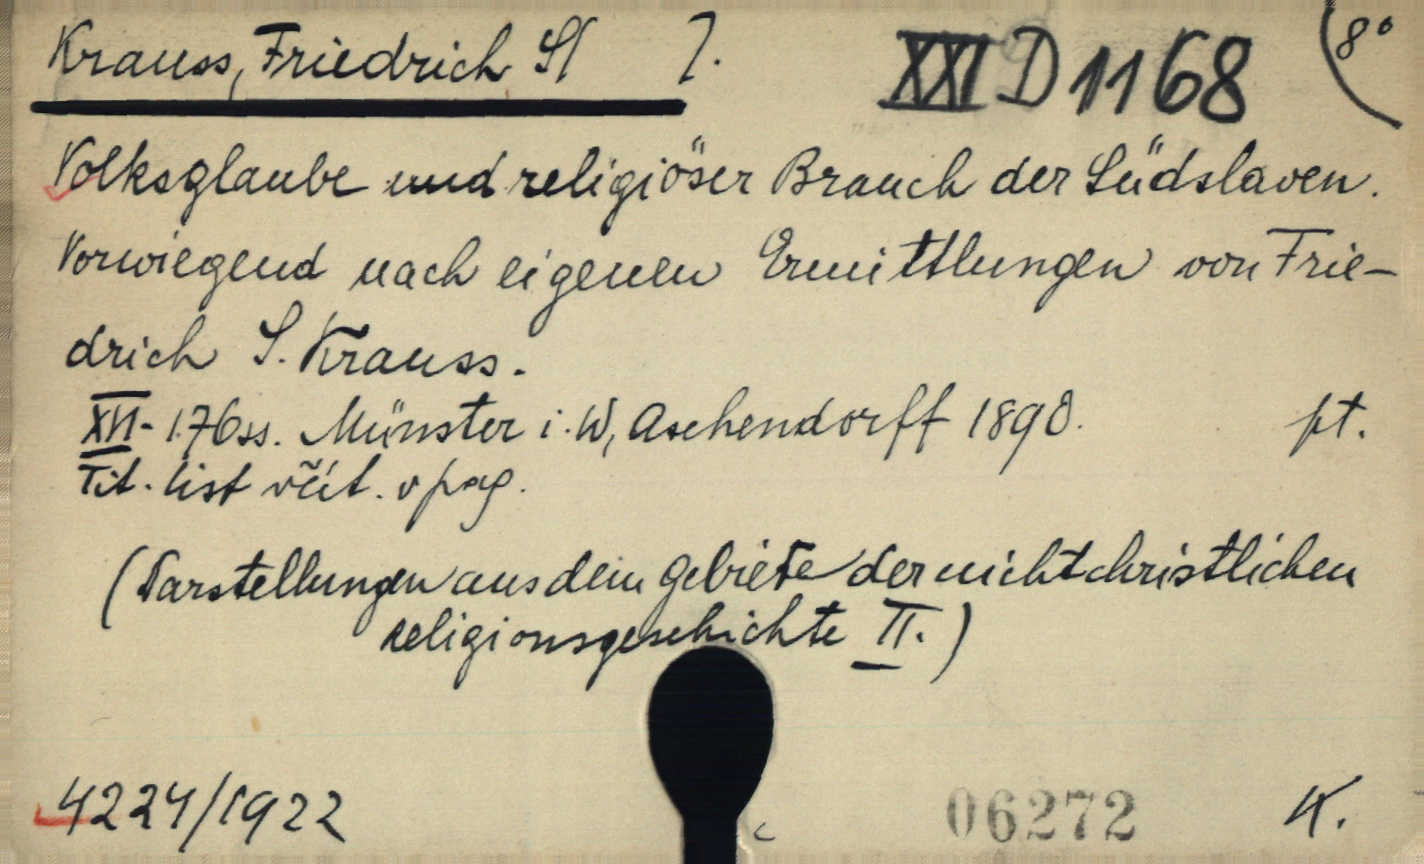 Krauss, Friedrich S[ ].
XXI D 1168
8°
Volksglaube und religiöser Brauch der Südslaven.
Vorwiegend nach eigenen Ermittlungen von Frie-
drich S. Krauss.
XVI. 176 ss. Münster i. W, Aschendorff 1890. pt.
Tit. list včít. v pag.
(Darstellungen aus dem Gebiete der nichtchristlichen
religionsgeschichte II.)
4224/1922
06272
K.